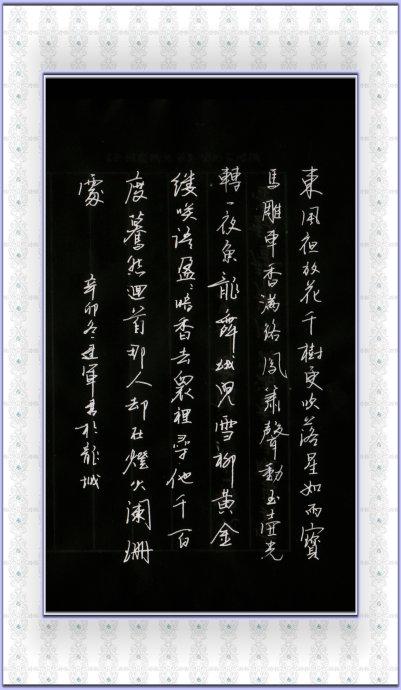 東風夜放花千樹更吹落星如雨寶
馬雕車香滿路鳳簫聲動玉壺光
轉一夜魚龍舞蛾兒雪柳黃金
縷咲語盈、暗香去衆裡尋他千百
度驀然迴首那人却在燈火闌珊
處
辛卯冬建軍書於龍城